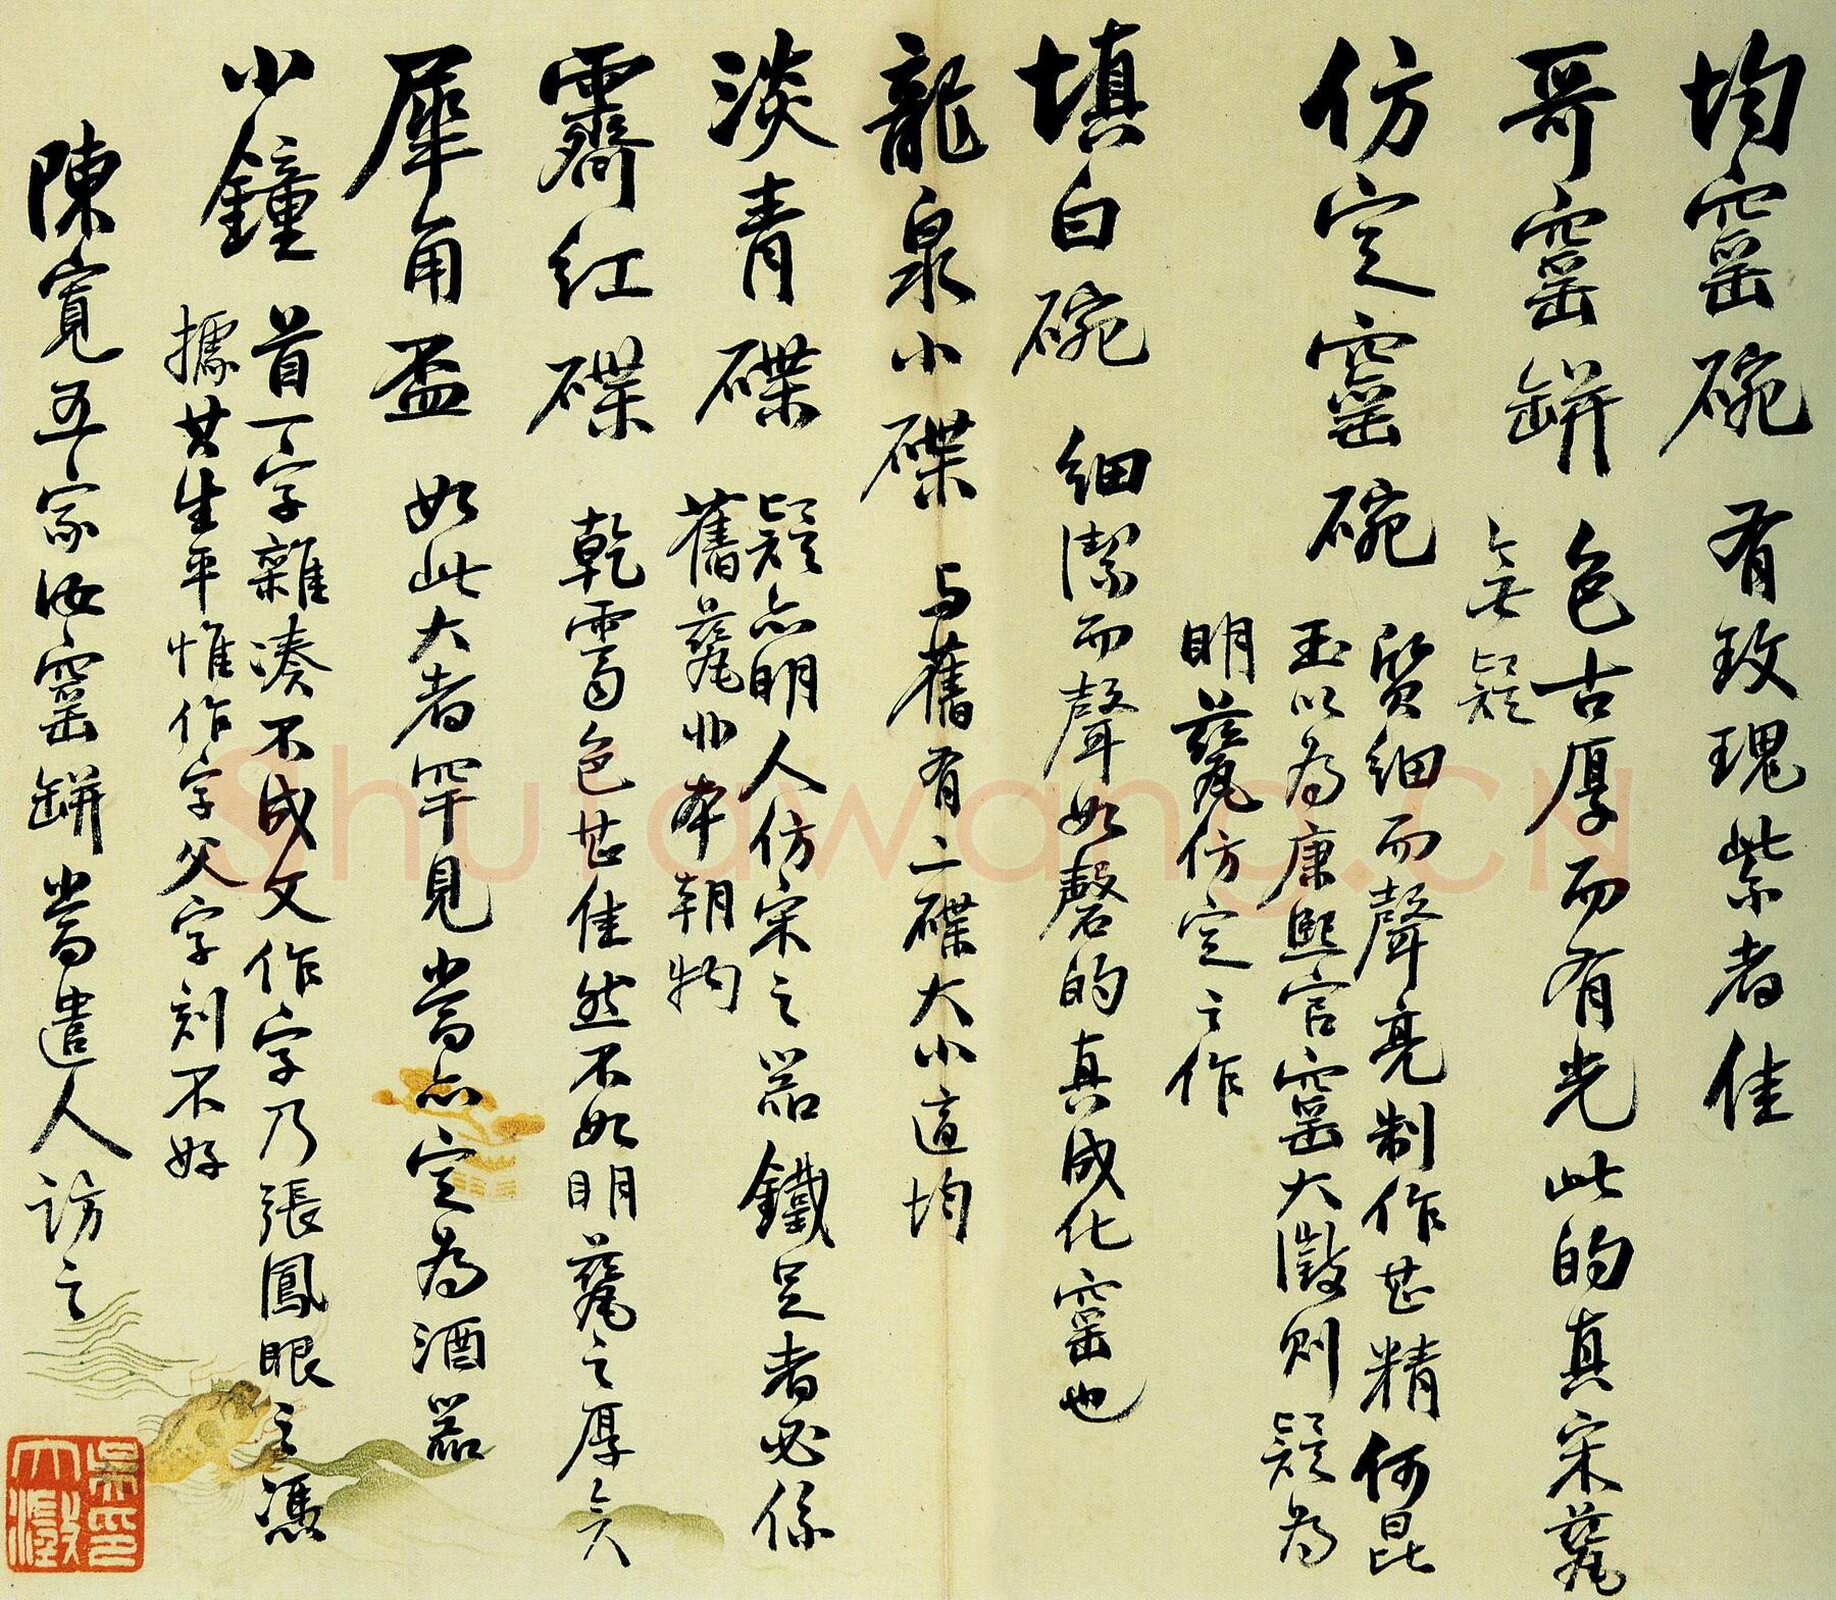 均窑碗 有玫瑰紫者佳
哥窑缾 色古厚而有光此的真宋甆
無疑
仿定窑碗 質細而聲亮制作甚精何昆
玉以為康熙官窑大澂則疑為
明甆仿定之作
填白碗 細潔而聲如磬的真成化窑也
龍泉小碟 与舊有二碟大小適均
淡青碟 疑亦明人仿宋之器鐵足者必係
舊甆非本朝物
霽紅碟 乾霽色甚佳然不如明甆之厚矣
犀角盃 如此大者罕見當亦定為酒器
小鐘 首一字雜湊不成文作字乃張鳳眼之憑
據其生平惟作字父字刻不好
陳寬五家汝窑缾當遣人訪之
吳印
大澂
ShufaWang.CN